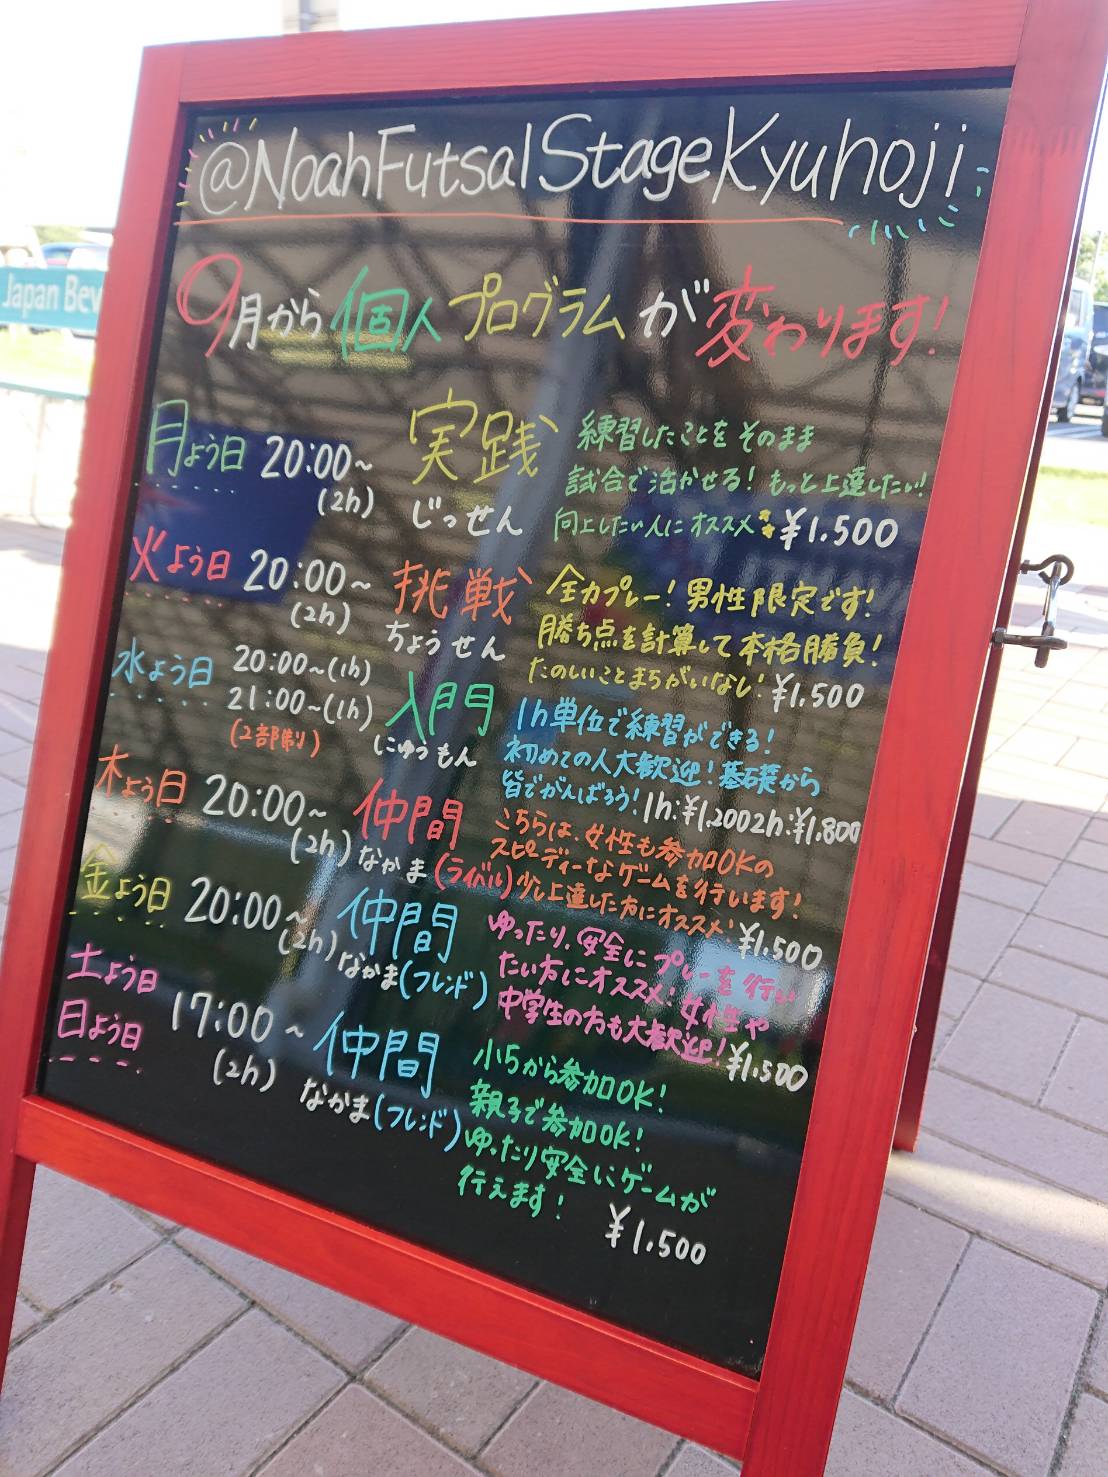 @NoahFutsalStageKyuhoji
9月から個人プログラムが変わります!
月よう日 20:00~ (2h) 実践 じっせん
練習したことをそのまま
試合で活かせる! もっと上達したい!
向上したい人にオススメ ¥1.500
火よう日 20:00~ (2h) 挑戦 ちょうせん
全力プレー! 男性限定です!
勝ち点を計算して本格勝負!
たのしいことまちがいなし! ¥1.500
水よう日 20:00~(1h)
21:00~(1h)
(2部制)
入門 にゅうもん
1h単位で練習ができる!
初めての人大歓迎! 基礎から
皆でがんばろう! 1h:¥1.200 2h:¥1.800
木よう日 20:00~ (2h) 仲間 なかま(ライバル)
こちらは、女性も参加OKの
スピーディーなゲームを行います!
少し上達した方にオススメ ¥1.500
金よう日 20:00~ (2h) 仲間 なかま(フレンド)
ゆったり、安全にプレーを行い
たい方にオススメ! 女性や
中学生の方も大歓迎! ¥1.500
土よう日
日よう日
17:00~ (2h) 仲間 なかま(フレンド)
小5から参加OK!
親子で参加OK!
ゆったり安全にゲームが
行えます!
¥1.500
Japan Bev